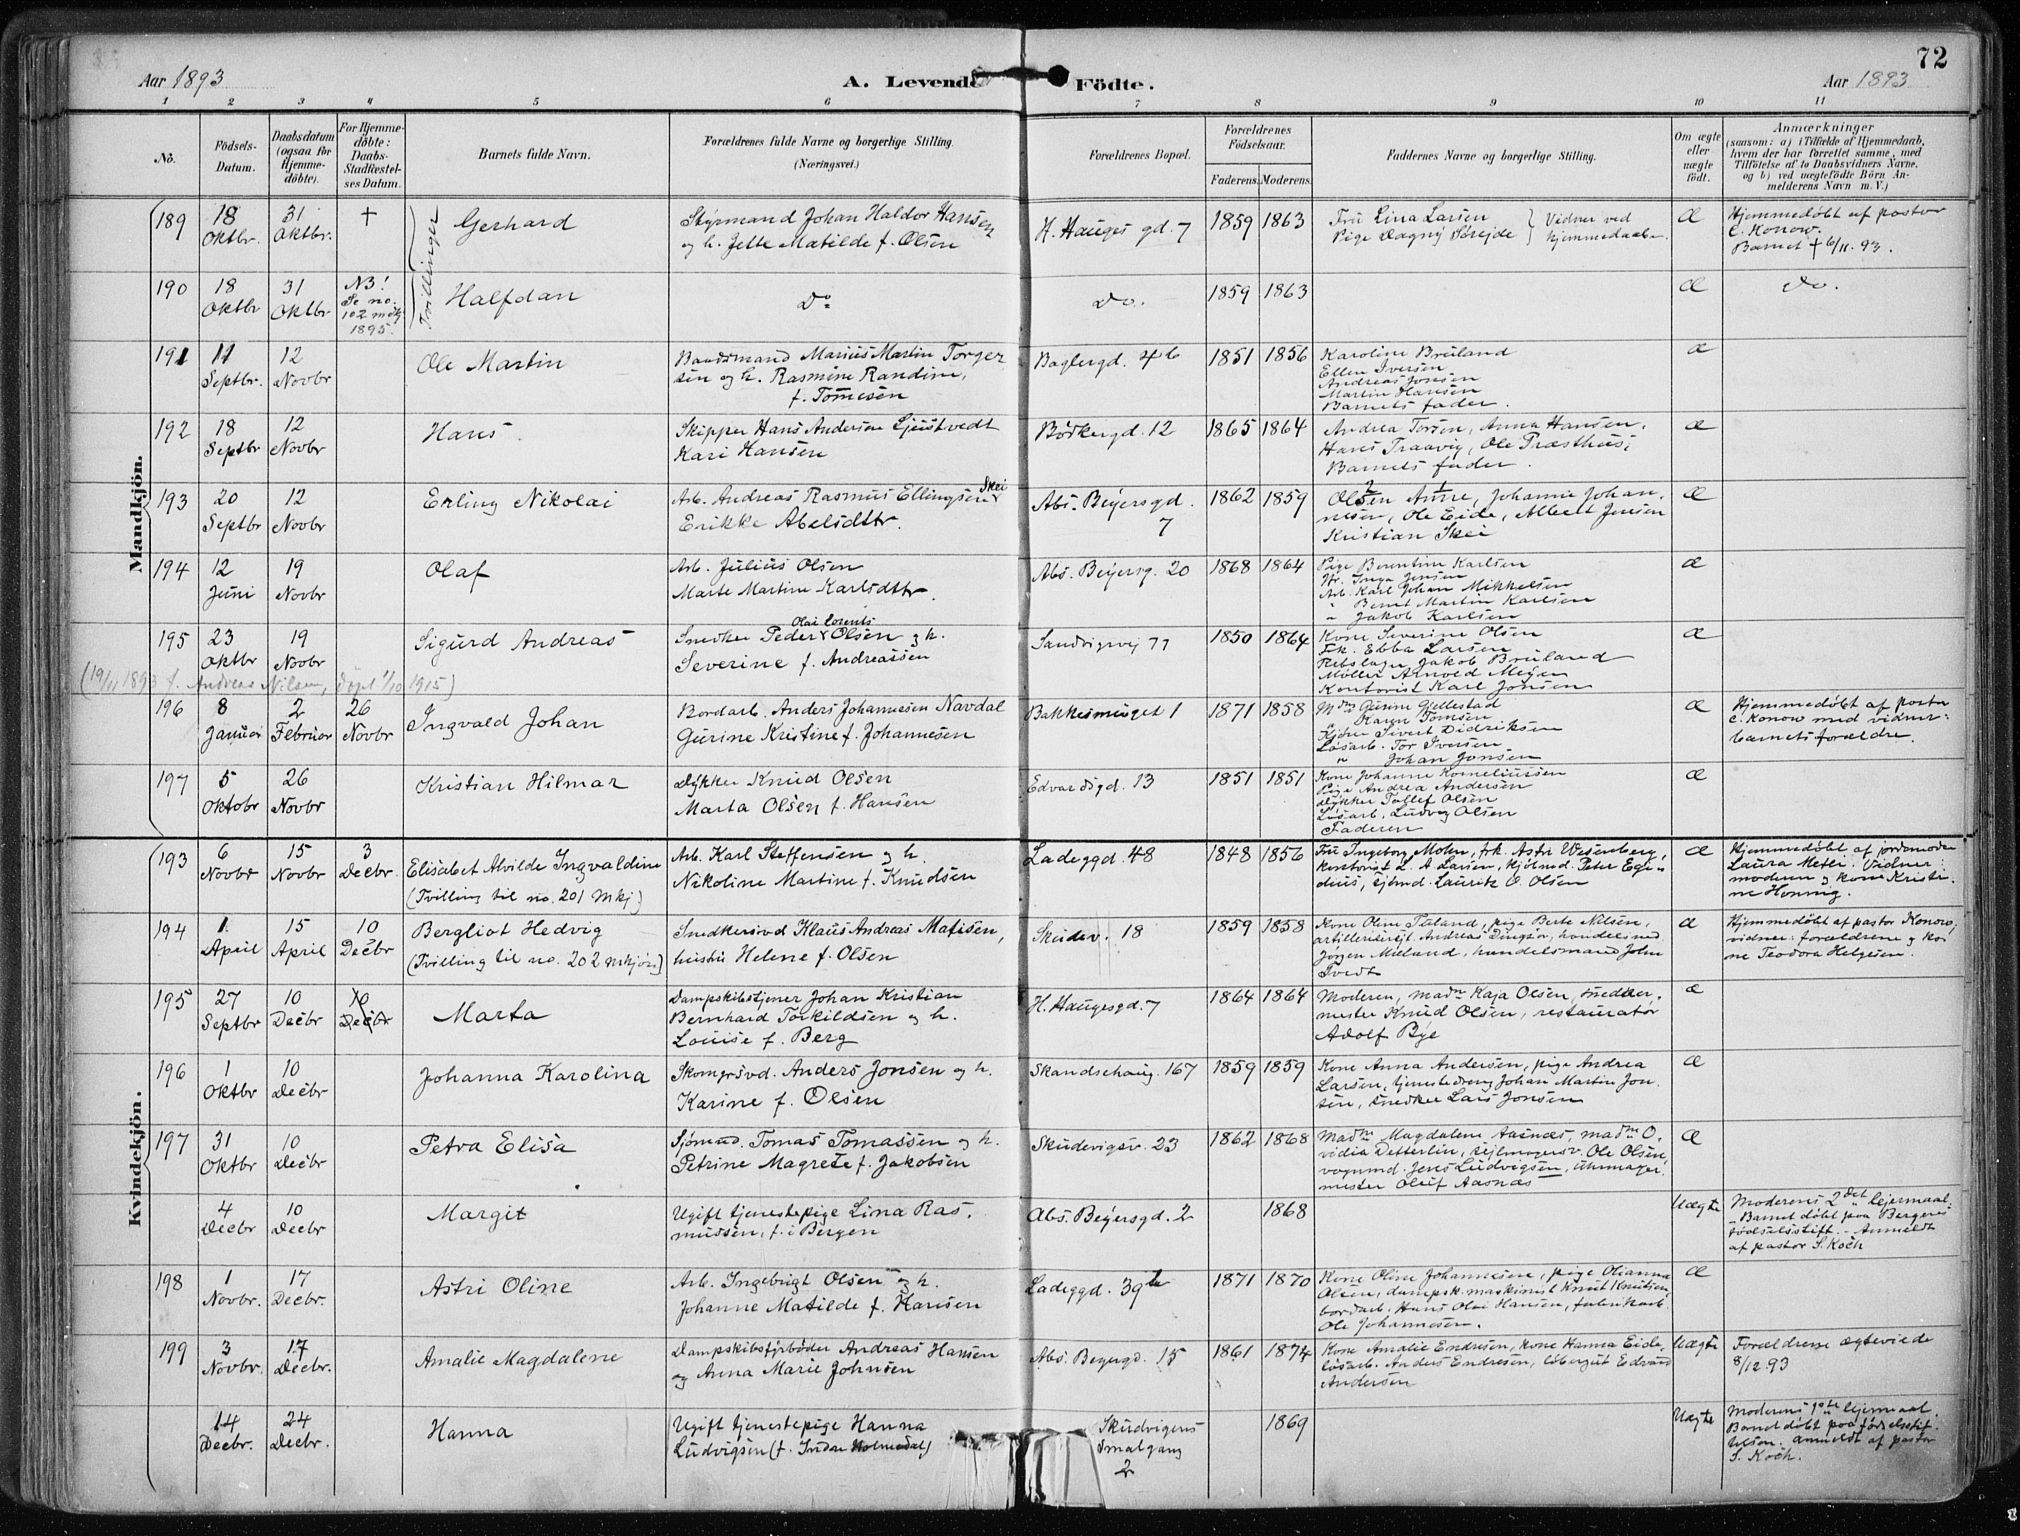 72
Aar 1893 A. Levende Födte. Aar 1893
1 2 3 4 5 6 7 8 9 10 11
No.
Födsels-
Datum.
Daabsdatum
(ogsaa for
Hjemme-
döbte).
For Hjemme-
döbte:
Daabs-
Stadfæstel-
ses Datum.
Barnets fulde Navn.
Forældrenes fulde Navne og borgerlige Stilling.
(Næringsvei.)
Forældrenes Bopæl.
Forældrenes
Födselsaar.
Faderens. Moderens.
Faddernes Navne og borgerlige Stilling.
Om ægte
eller
uægte
født.
Anmærkninger
(saasom: a) i Tilfælde af Hjemmedaab,
hvem der har forrettet samme, med
Tilföielse af to Daabsvidners Navne,
og b) ved uægtefödte Börn An-
melderens Navn m. V.)
Mandkjön.
Tvillinger
189
18
Oktbr.
31
Oktbr.
+
Gerhard
Styrmand Johan Haldor Hansen
og h. Jette Matilde f. Olsen
H. Hauges gd. 7
1859 1863
Fru Lina Larsen
Pige Dagny Sørejde
Vidner ved
hjemmedaaben
Æ
Hjemmedøbt af pastor
C. Konow.
Barnet + 6/11. 93.
190
18
Oktbr
31
Oktbr
NB!
Se no.
102 mkj
1895.
Halfdan
Do
Do.
1859 1863
Æ
Do.
191
11
Septbr.
12
Novbr
Ole Martin
Baadsmand Marius Martin Torger
sen og h. Rasmine Randine,
f. Tomesen
Baglergd. 46
1851 1856
Karoline Bruland
Ellen Iversen
Andreas Jonsen
Martin Hansen
Barnets fader.
Æ
192
18
Septbr
12
Novbr
Hans.
Skipper Hans Andersen Ljustvedt
Kari Hansen
Bødkergd. 12
1865 1864
Andrea Torsen, Anna Hansen,
Hans Traavig, Ole Præsthus,
Barnets fader.
Æ
193
20
Septbr
12
Novbr
Erling Nikolai
Arb. Andreas Rasmus Ellingsen Skei
Erikke Abelsdtr.
Abs. Beyersgd.
7
1862 1859
Olsen Anne, Johanne Johan-
nesen, Ole Eide, Albert Jensen
Kristian Skei
Æ
194
12
Juni
19
Novbr
Olaf
Arb. Julius Olsen
Marte Martine Karlsdtr.
Abs. Beyersg. 20
1868 1864
Pige Berentine Karlsen
Inga Jensen
Arb. Karl Johan Mikkelsen
" Bernt Martin Karlsen
" Jakob Karlsen
Æ
195
23
Oktbr
19
Novbr
Sigurd Andreas
Olai Lorents
Snedker Peder Olsen og h.
Severine f. Andreassen
Sandvigsvej 77
1850 1864
Kone Severine Olsen
Frk. Ebba Larsen
Rebslager Jakob Bruland
Møller Arnold Meyer
Kontorist Karl Jonsen
Æ
(19/11 1893 f. Andreas Nilsen, døpt 1/10 1915)
196
8
Januar
2
Februar
26
Novbr
Ingvald Johan
Bordarb. Anders Johannesen Navdal
Gurine Kristine f. Johannesen
Bakkesmuget 1
1871 1858
Mdm Gurine Gellestad
" Karen Tomsen
Kjører Sivert Didriksen
Løsarb. Tor Iversen
" Johan Jonsen
Æ
Hjemmedøbt af pastor
C. Konow med vidner:
barnets forældre.
197
5
Oktobr
26
Novbr
Kristian Hilmar
Dykker Knud Olsen
Marta Olsen f. Hansen
Edvardsgd. 13
1851 1851
Kone Johanne Korneliussen
Pige Andrea Andersen
Dykker Tollef Olsen
Løsarb. Ludvig Olsen
Faderen
Æ
Kvindekjön.
193
6
Novbr
15
Novbr
3
Decbr.
Elisabet Alvilde Ingvaldine
(Tvilling til no. 201 Mkj)
Arb. Karl Steffensen og h.
Nikoline Martine f. Knudsen
Ladeggd. 48
1848 1856
Fru Ingeborg Mohn, frk. Astri Wesenberg,
kontorist L. A. Larsen, kjølmd. Peter Ege-
dius, sjømd. Lauritz O. Olsen
Æ
Hjemmedøbt af jordemoder
Laura Meter. Vidner:
moderen og kone Kristi-
ne Henning.
194
1.
April
15
April
10
Decbr
Bergliot Hedvig
(Tvilling til no. 202 mkjøn)
Snedkersvd Klaus Andreas Matisen,
hustru Helene f. Olsen
Skudev. 18
1859 1858
Kone Oline Tuland, pige Berte Nilsen,
artillerisejt. Andreas Dingsør, handelsmd.
Jørgen Mieland, handelsmand John
Tvedt
Æ
Hjemmedøbt af pastor Konow,
vidner: forældrene og ko-
ne Teodora Helgesen.
195
27
Septbr
10
Decbr
10
Decbr
Marta
Dampskibstjener Johan Kristian
Bernhard Torkildsen og h.
Louise f. Berg
H. Haugesgd. 7
1864 1864
Moderen, madm Kaja Olsen, snedker-
mester Knud Olsen, restauratør
Adolf Bye
Æ
196
1
Oktbr
10
Decbr
Johanna Karolina
Skomgrsvd. Anders Jonsen og h.
Karine f. Olsen
Skandsehaug. 167
1859 1859
Kone Anna Andersen, pige Andrea
Larsen, tjenestedreng Johan Martin Jon-
sen, snedker Lars Jonsen
Æ
197
31
Oktbr
10
Decbr
Petra Elisa
Sjømnd. Tomas Tomassen og h.
Petrine Magrete f. Jakobsen
Skudevigsv. 23
1862 1868
Madm Magdalene Aasnæs, madm O-
vidia Detterlin, sejlmagersv. Ole Olsen,
vognmd. Jens Ludvigsen, uhrmager-
mester Oluf Aasnæs
Æ
4
Decbr
10
Decbr
Margit
Ugift tjenestepige Lina Ras-
mussen, f. i Bergen
Abs. Beyersgd. 2
1868
Uægte
Moderens 2det lejermaal
Barnet døbt paa Bergens
fødselsstift. - Anmeldt
af pastor S. Koch
198
1
Novbr.
17
Decbr.
Astri Oline
Arb. Ingebrigt Olsen og h.
Johanne Matilde f. Hansen
Ladeggd. 39b
1871 1870
Kone Oline Johannesen, pige Olianna
Olsen, dampsk. maskinist Knut Knutsen,
bordarb. Hans Olai Hansen, fabrikarb.
Ole Johannesen.
Æ
199
3
Novbr.
17
Decbr.
Amalie Magdalene
Dampskibsfyrbøder Andreas Hansen
og Anna Marie Johnsen
Abs. Beyergd. 15
1861 1874
Kone Amalie Endresen, kone Hanna Eide,
løsarb. Anders Endresen, løbergut Edvard
Andersen
Uægte
Forældrene ægteviede
8/12.93
14
Decbr.
24
Decbr.
Hanna
Ugift tjenestepige Hanna
Ludvigsen (f. Indre Holmedal)
Skudvigens
Smalgang
2
1869
Uægte
Moderens 1ste lejermaal.
Barnet døbt paa fødselsstif-
telsen. Anmeldt af pastor
S. Koch.